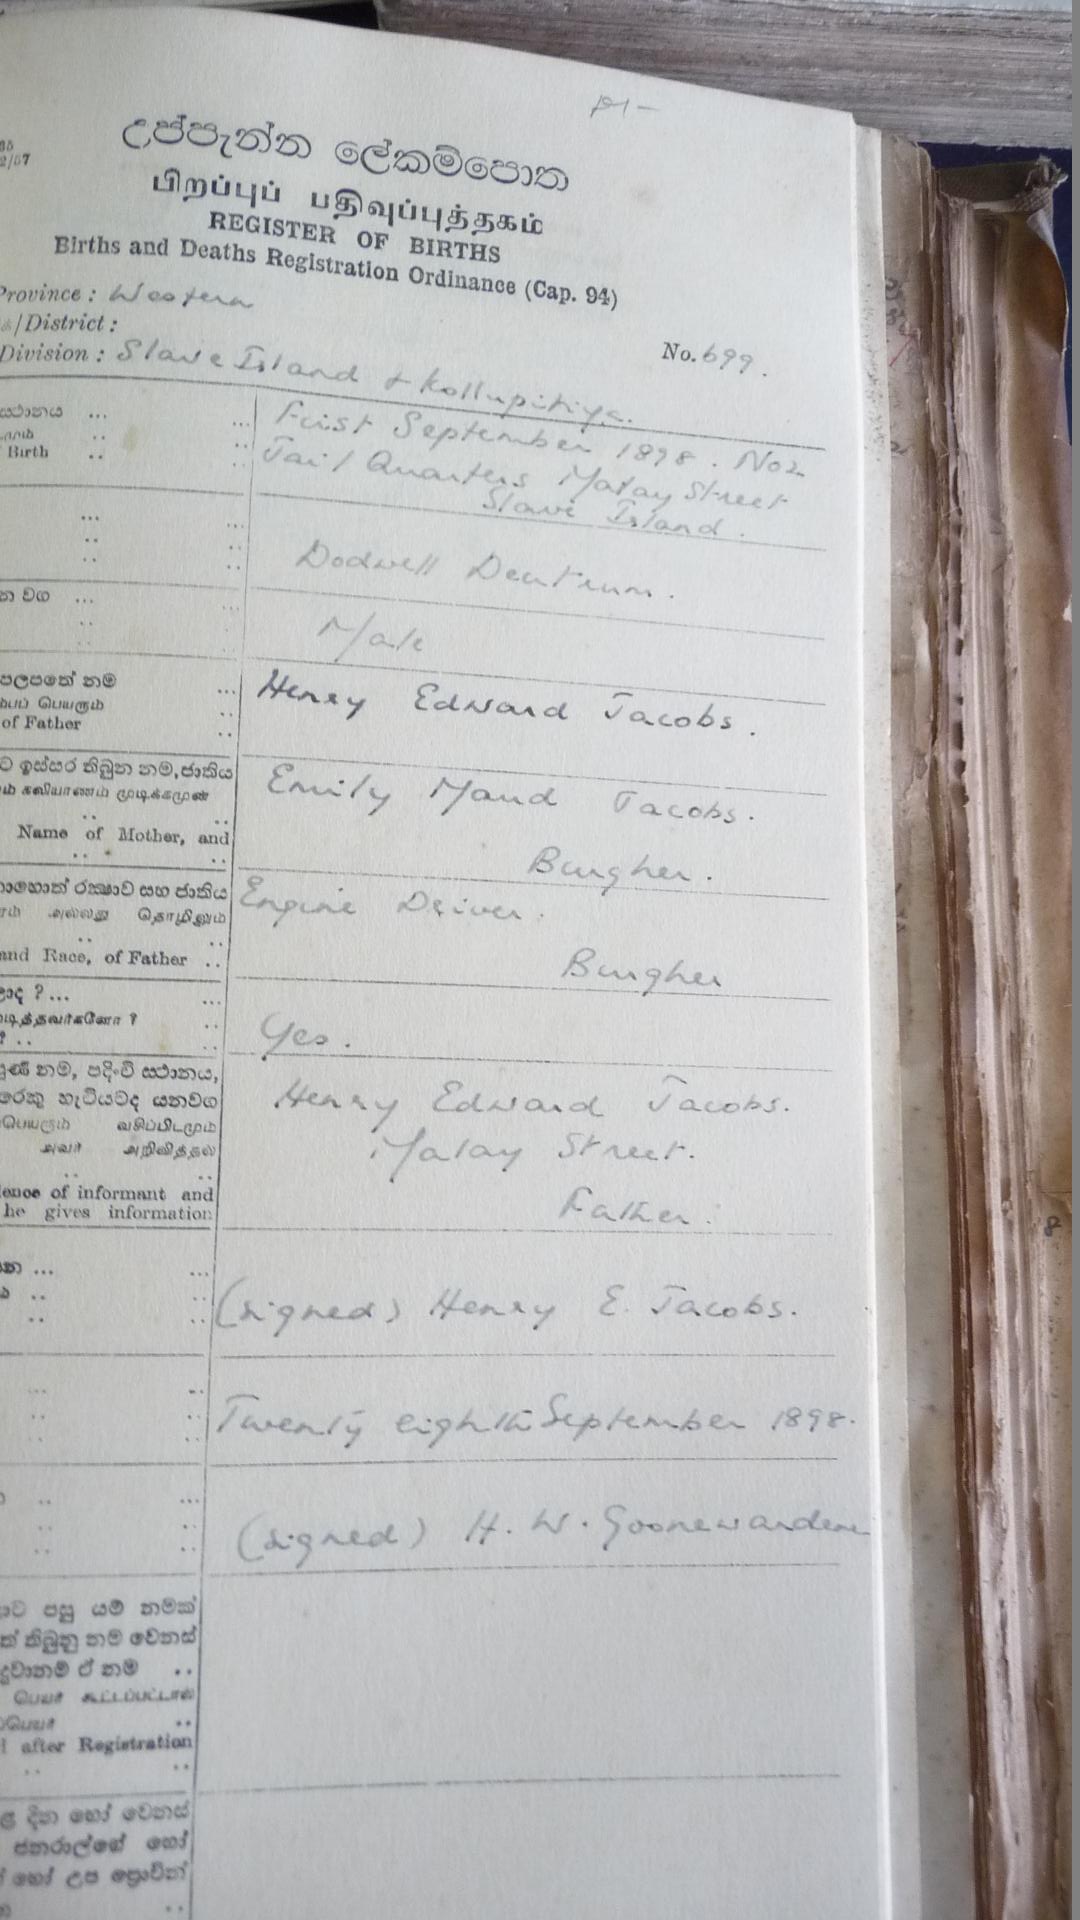 2/57
උප්පැන්න ලේකම්පොත
பிறப்புப் பதிவுப்புத்தகம்
REGISTER OF BIRTHS
Births and Deaths Registration Ordinance (Cap. 94)
Province : Western
/District :
Division : Slave Island & Kollupitiya.
No. 699.
ස්ථානය ... ...
Birth
First September 1898. No 2
Jail Quarters Malay Street
Slave Island.
Dodwell
Male
පලපතේ නම
பெயரும்
of Father
Henry Edward Jacobs.
ට ඉස්සර තිබුන නම, ජාතිය
ம் கலியாணம் முடிக்கமுன்
Name of Mother, and
Emily Maud Jacobs.
Burgher.
රක්ෂාව සහ ජාතිය
அல்லது தொழிலும்
and Race, of Father ..
Engine Driver.
Burgher
ාද ? ...
டித்தவர்களோ ?
Yes.
නම, පදිංචි ස්ථානය,
රෙකු හැටියටද යනවග
பெயரும் வசிப்பிடமும்
அவர் அறிவித்தல
dence of informant and
he gives information
Henry Edward Jacobs.
Malay Street.
Father.
(signed) Henry E. Jacobs.
Twenty eighth September 1898.
(signed) H. W. Goonewardene
ට පසු යම් නමක්
ත් තිබුනු නම වෙනස්
වානම් ඒ නම ..
பெயர் கூட்டப்பட்டால்
பெயர்
after Registration
ළ දින හෝ වෙනස්
ජනරාල්ගේ හෝ
හෝ උප ප්‍රොවින්
8